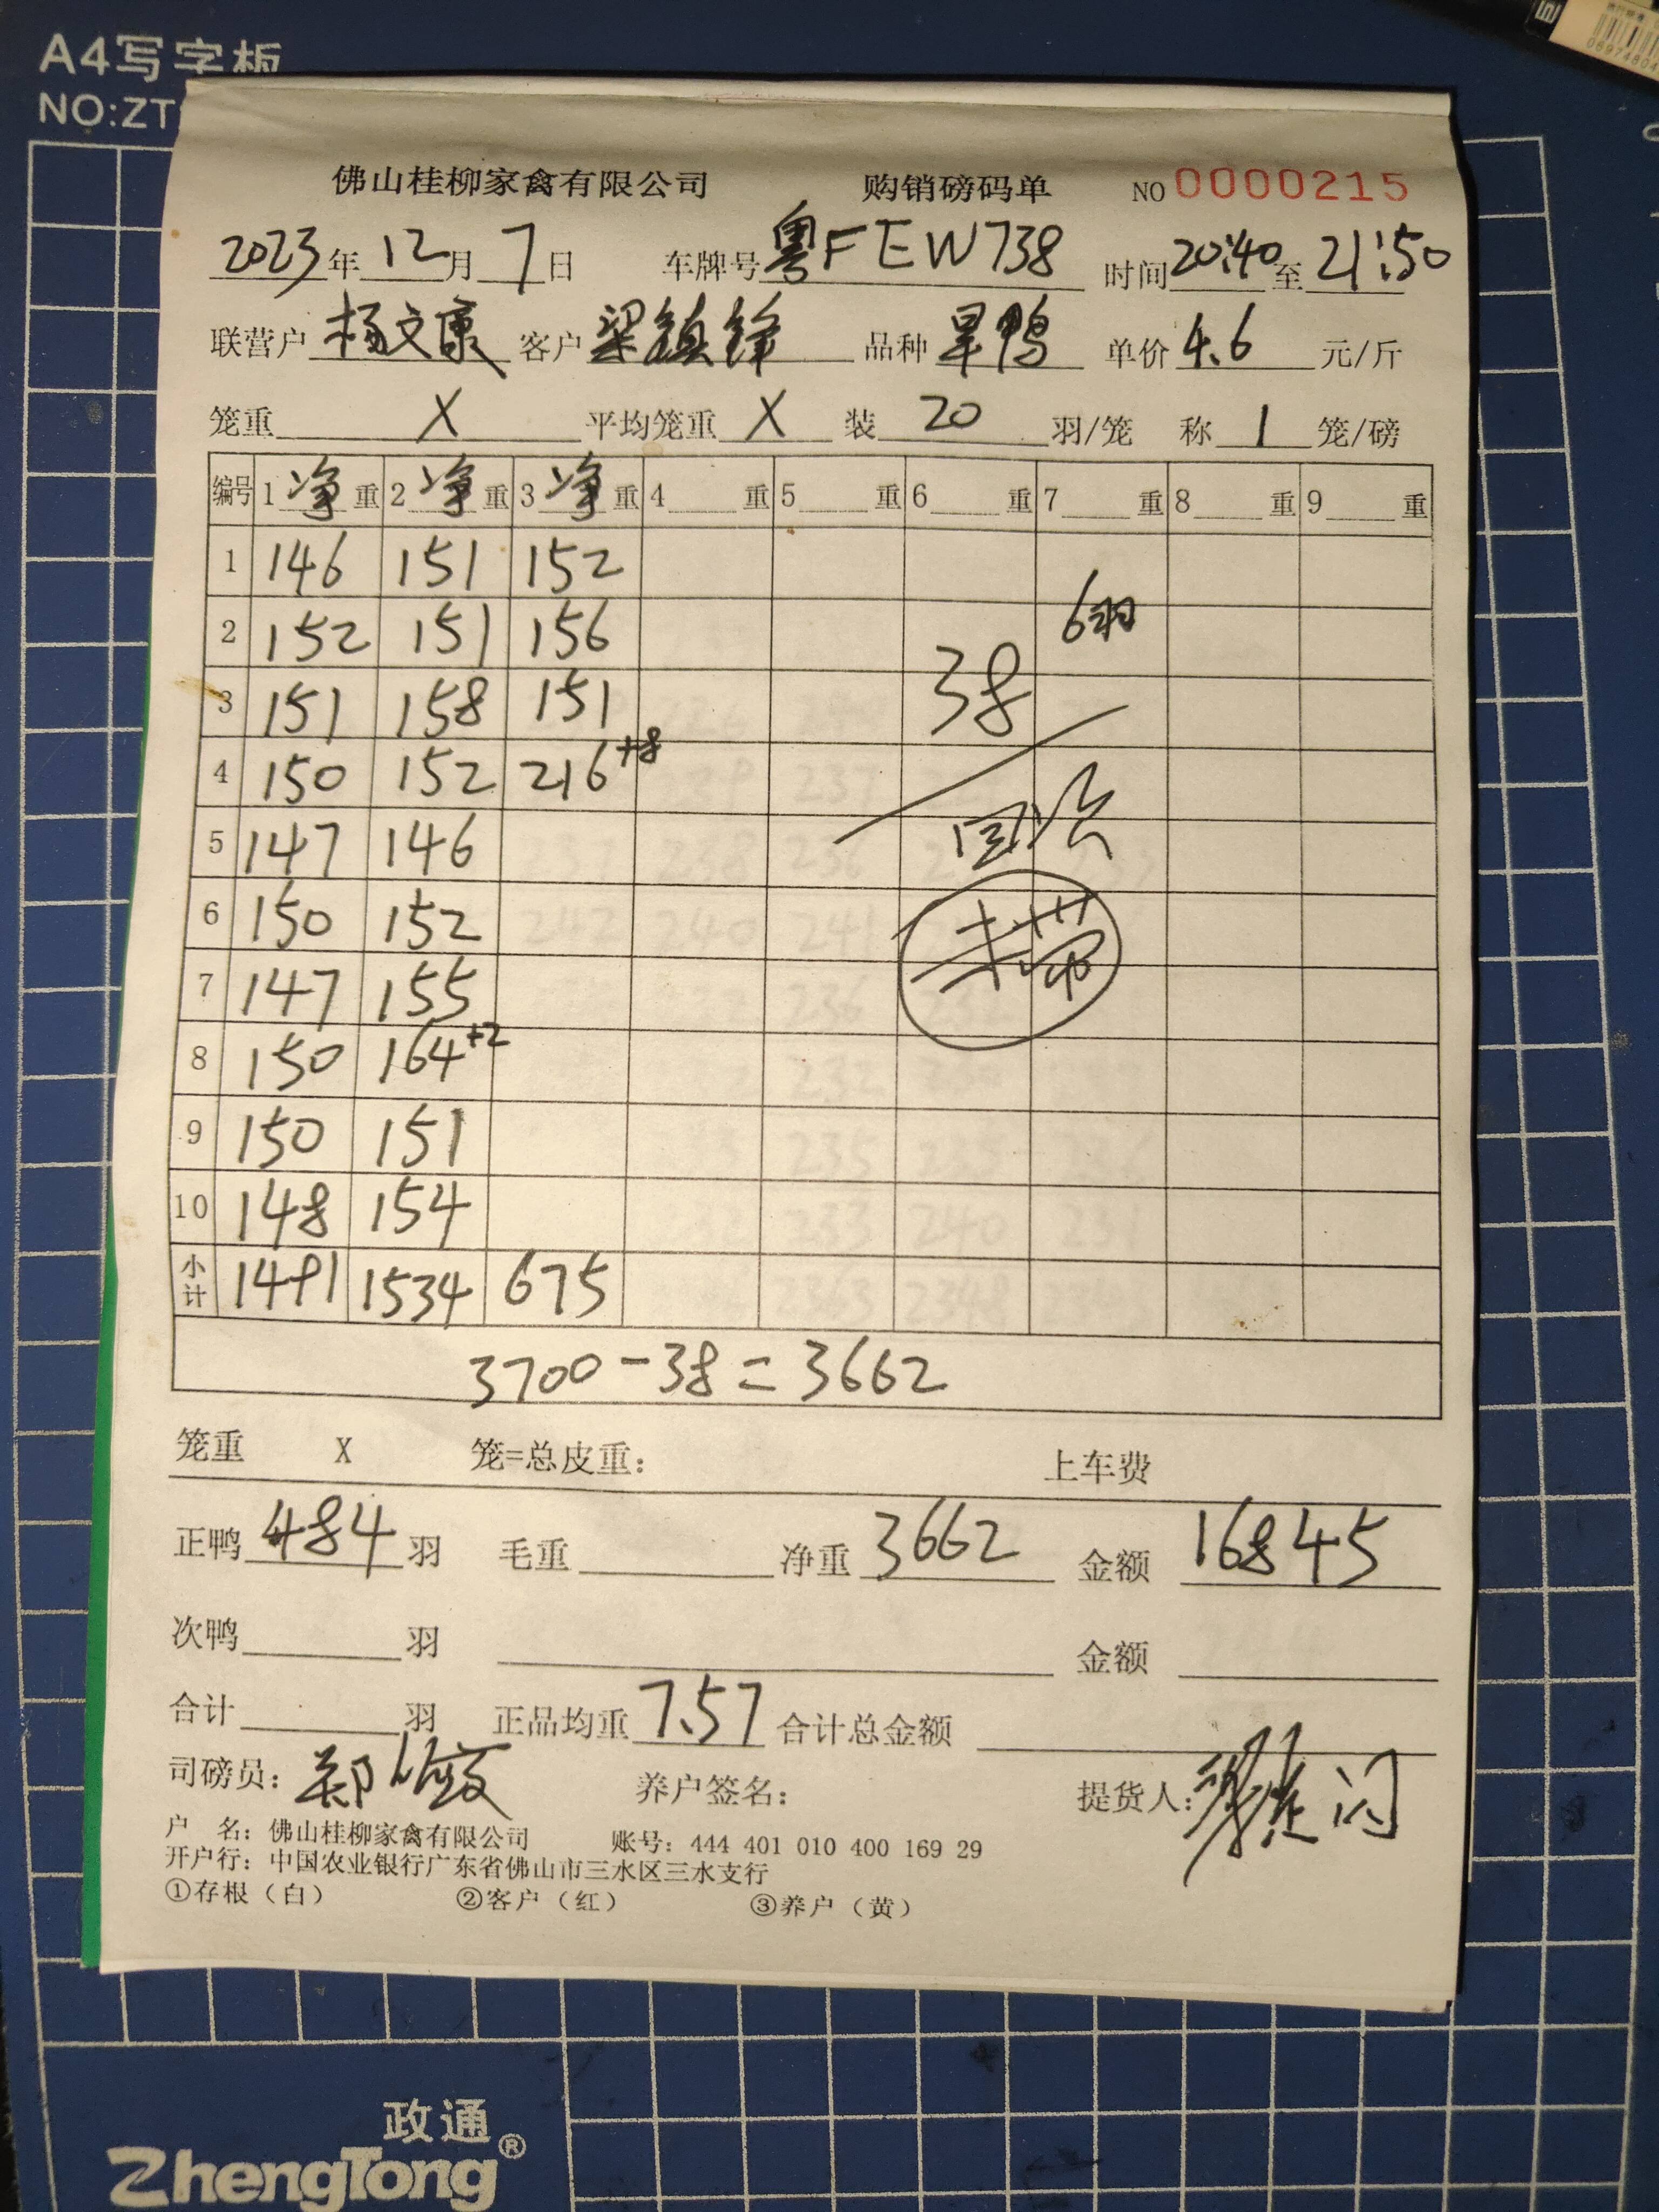 A4写字板
NO:ZT
06974804
佛山桂柳家禽有限公司 购销磅码单 NO 0000215
2023年12月7日 车牌号粤FEW738 时间20:40至21:50
联营户杨文康 客户梁镇锋 品种旱鸭 单价4.6元/斤
笼重 X 平均笼重 X 装 20 羽/笼 称 1 笼/磅
编号 1净重 2净重 3净重 4 重 5 重 6 重 7 重 8 重 9 重
1 146 151 152
2 152 151 156 6羽
3 151 158 151 38
4 150 152 216+8
5 147 146
6 150 152 未带
7 147 155
8 150 164+2
9 150 151
10 148 154
小计 1491 1534 675
3700-38=3662
笼重 X 笼=总皮重: 上车费
正鸭484羽 毛重 净重3662 金额16845
次鸭 羽 金额
合计 羽 正品均重7.57 合计总金额
司磅员: 养户签名: 提货人:
户 名: 佛山桂柳家禽有限公司 账号: 444 401 010 400 169 29
开户行: 中国农业银行广东省佛山市三水区三水支行
①存根(白) ②客户(红) ③养户(黄)
政通
ZhengTong®